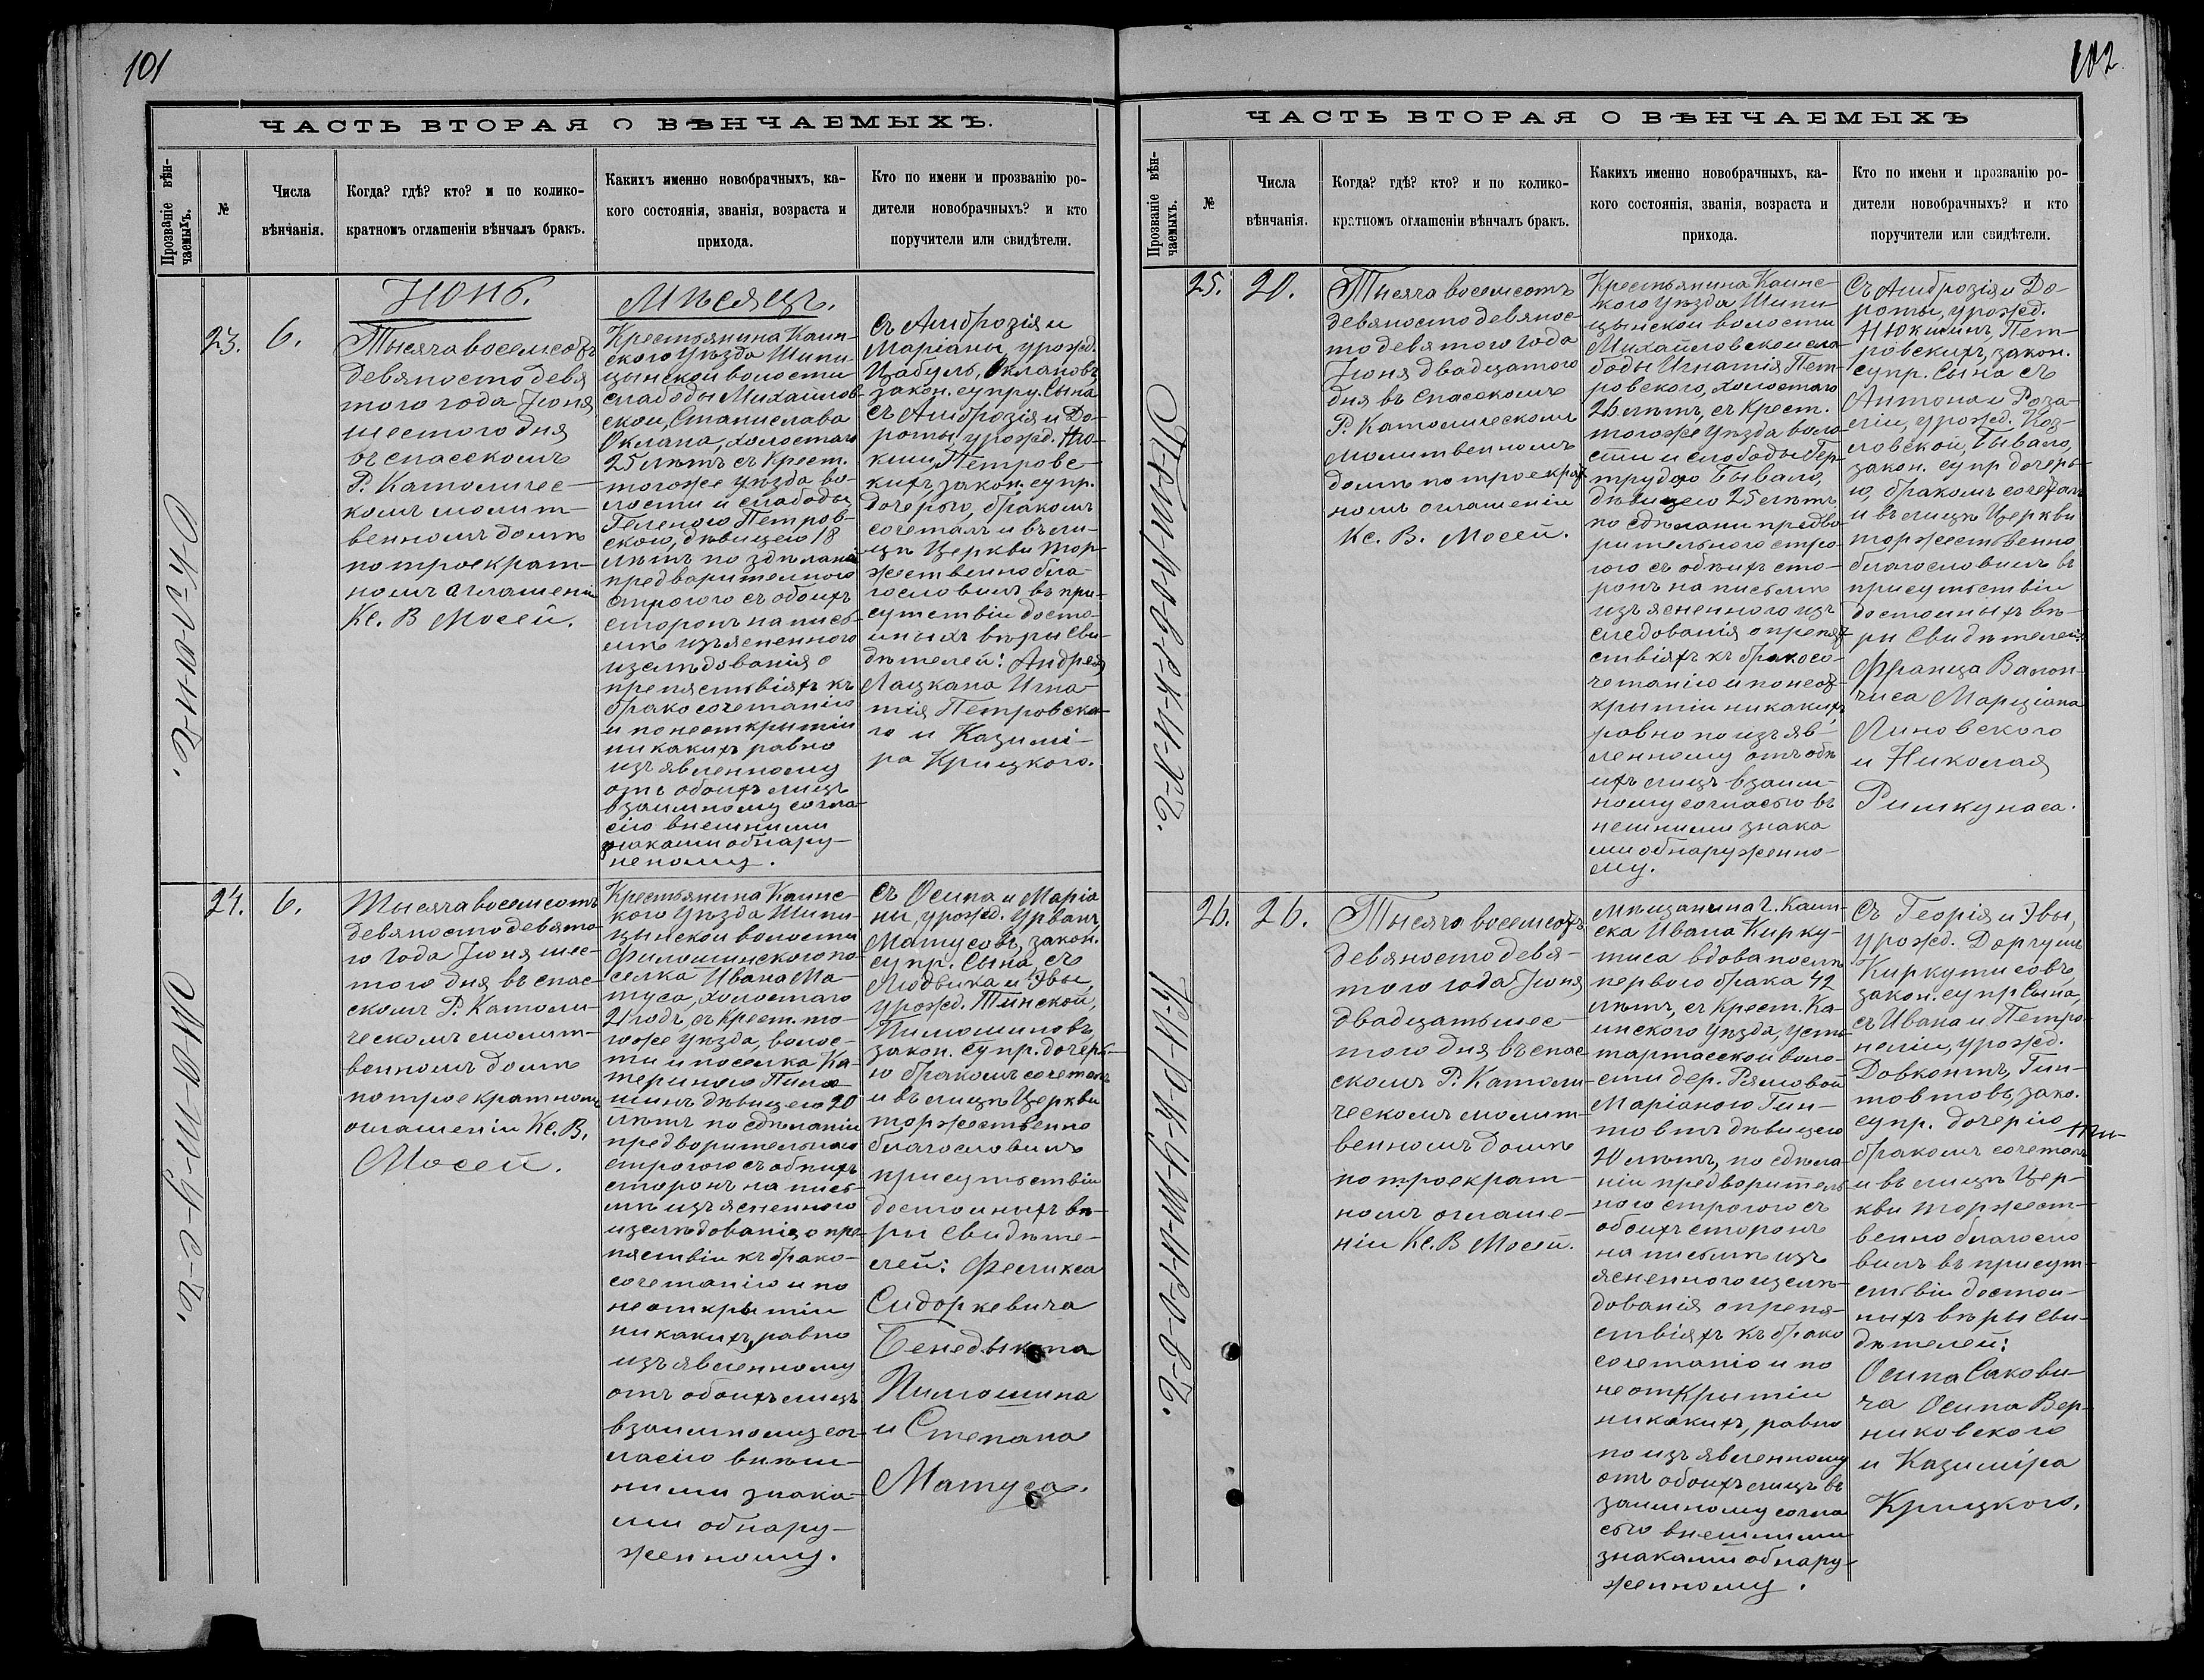 101
ЧАСТЬ ВТОРАЯ О ВѢНЧАЕМЫХЪ.
Прозваніе вѣн-
чаемыхъ.
№
Числа
вѣнчанія.
Когда? гдѣ? кто? и по колико-
кратномъ оглашеніи вѣнчалъ бракъ.
Какихъ именно новобрачныхъ, ка-
кого состоянія, званія, возраста и
прихода.
Кто по имени и прозванію ро-
дители новобрачныхъ? и кто
поручители или свидѣтели.
О-к-л-а-н-а.
23.
6.
Іюнь.
Тысяча восемсотъ
девяносто девя
того года Іюня
шестого дня
въ спасскомъ
Р. Католичес-
комъ молит-
венномъ домѣ
по троекрат-
номъ аглашеніи
Кс. В Мосей.
Мѣсяцъ.
Крестьянина Каин-
ского Уѣзда Шипи-
цынской волости
слабоды Михайлов-
ской, Станислава
Оклана, холостаго
25 лѣтъ съ Крест.
тогоже уѣзда во-
лости и слабоды
Геленою Петров-
скою, дѣвицею 18
лѣтъ по здѣлани
предварителного
строгого съ обоихъ
сторонъ на пись-
мѣ изъясненного
изслѣдованія о
препятствіяхъ къ
бракосочетанію
и по неоткрытіи
никакихъ равно
изъявленному
отъ обоихъ лицъ
взаимному согла-
сію внешними
знаками обнару-
неному.
Съ Амброзія и
Маріаны урожд.
Цабуль, Оклановъ
закон. супру. Сына
съ Амброзія и До-
роты урожд. Ню-
кши Петровс-
кихъ, закон. супр.
дочерью, бракомъ
сочеталъ и въ ли-
цѣ Церкви тор-
жественно бла-
гословилъ въ при-
сутствіи досто-
иныхъ вѣры Сви-
дѣтелей: Андрея
Лацкана Игна-
тія Петровска-
го и Казимі-
ра Крицкого.
М-а-т-у-с-а.
24.
6.
Тысяча восемсотъ
девяносто девято-
го года Іюня шес-
того дня въ спас-
скомъ Р. Католи-
ческомъ молит-
венномъ домѣ
по троекратномъ
оглашеніи Кс. В.
Мосей.
Крестьянина Каинс-
кого Уѣзда Шипи-
цынской волости
Филошинского по-
селка Ивана Ма-
туса, холостаго
21 годъ, съ Крест. то-
гоже Уѣзда, волос-
ти и поселка Ка-
териною Пило-
шинъ дѣвицею 20
лѣтъ по сдѣланіи
предворительнаго
строгого съ обѣихъ
сторонъ на пись-
мѣ изъясненного
изслѣдованія о пре-
пяствіи къ брако-
сочетанію и по
неоткрытіи
никакихъ, равно
изъявленному
отъ обоихъ лицъ
взаимному сог-
ласію внѣш-
ними знака-
ми обнару-
женному.
Съ Осипа и Маріа
ны, урожд. Урванъ,
Матусовъ, закон.
супр. Сына, съ
Людвика и Эвы,
урожд. Тинской,
Пилошиновъ
закон. супр. дочерь-
ю бракомъ сочеталъ
и въ лицѣ Церкви
торжественно
благословилъ
присутствіи
достоиныхъ вѣ-
ры Свидѣте-
лей: Феликса
Сидоркевича
Бенедыкта
Пилошина
и Степана
Матуса.
102
ЧАСТЬ ВТОРАЯ О ВѢНЧАЕМЫХЪ
Прозваніе вѣн-
чаемыхъ.
№
Числа
вѣнчанія.
Когда? гдѣ? кто? и по колико-
кратномъ оглашеніи вѣнчалъ бракъ.
Какихъ именно новобрачныхъ, ка-
кого состоянія, званія, возраста и
прихода.
Кто по имени и прозванію ро-
дители новобрачныхъ? и кто
поручители или свидѣтели.
25.
20.
Тысяча восемсотъ
девяносто девянос-
то девятого года
Іюня двадцатого
дня въ Спасскомъ
Р. Католическомъ
молитвенномъ
домѣ по троекрат
номъ оглашеніи
Кс. В. Мосей.
Крестьянина Каинс-
кого Уѣзда Шипи-
цынской волости
Михайловской сла-
боды Игнатія Пет-
ровского, холостаго
26 лѣтъ, съ Крест.
тогоже Уѣзда воло-
сти и слободы Гер-
трудою Бывало,
дѣвицею 25 лѣтъ
по сдѣлани предво-
рительного стро-
гого съ обѣихъ сто-
ронъ на письмѣ
изъясненного из
следованія о препят
ствіяхъ къ бракосо-
четанію и по неот-
крытіи никакихъ
равно по изъяв-
ленному отъ обѣ
ихъ лицъ взаим-
ному согласію въ
нешними знака
ми обнаруженно-
му.
Съ Амброзія и До-
роты, урожд.
Нюкшилъ, Пет-
ровскихъ, закон.
супр. Сына съ
Антона и Роза-
ліи, урожд. Коз-
ловской, Бывало,
закон. супр дочерь-
ю, бракомъ сочеталъ
и въ лицѣ Церкви
торжественно
благословилъ въ
присутствіи
достоиныхъ вѣ-
ры Свидѣтелей:
Франца Валон-
чиса Марціана
Линовского
и Николая
Римкунаса.
К-и-р-к-у-т-и-с-о-в-а.
26.
26.
Тысяча восемсотъ
девяносто девя-
того года Іюня
двадцать шес-
того дня въ спас-
скомъ Р. Католи-
ческомъ молит-
венномъ домѣ
по троекрат-
номъ оглаше-
ніи Кс. В Мосей.
Мѣщанина г. Каин-
ска Ивана Кирку-
тиса вдова послѣ
первого брака 42
лѣтъ, съ Крест. Ка-
инского Уѣзда, усть-
тартасской воло-
сти дер. Рямовой
Маріаною Гин-
товтъ дѣвицею
20 лѣтъ, по сдѣла-
ніи предворитель
ного строгого съ
обоихъ сторонъ
на письмѣ изъ
ясненного изслѣ-
дованія о препя-
ствіяхъ къ брако
сочетанію и по
неоткрытіи
никакихъ, равно
по изъявленному
отъ обоихъ лицъ в
заимному согла
сью внешними
знаками обнару-
женному.
Съ Георія и Эвы,
урожд. Доргуш
Киркутисовъ,
закон. супр Сына,
съ Ивана и Петро-
неліи, урожд.
Довконтъ, Гин-
товтовъ, зако.
супр. дочерію
бракомъ сочеталъ
и въ лицѣ Цер-
кви торжест-
венно благосло
вилъ въ присут-
ствіи достои-
ныхъ вѣры Сви-
дѣтелей:
Осипа Сакови-
ча Осипа Вер-
никовского
и Казиміра
Крицкого.